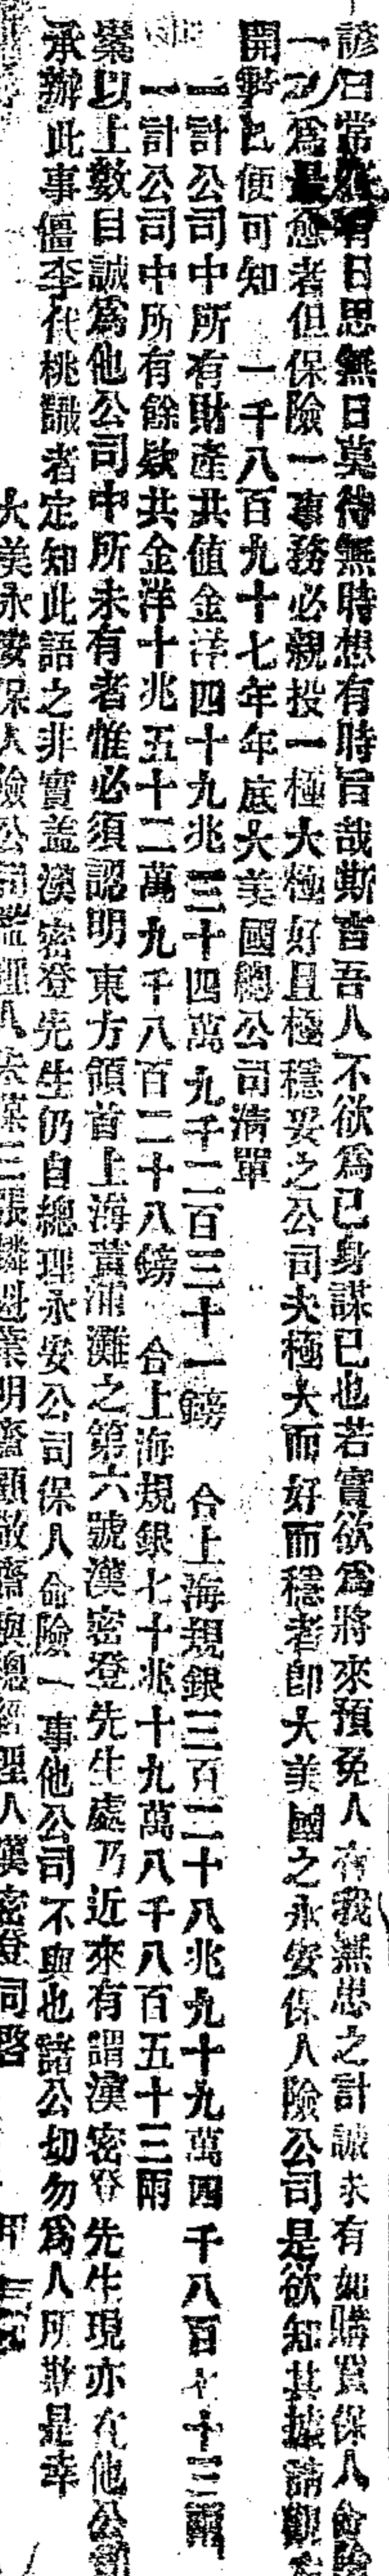 諺曰常將有日思無日莫待無時想有時旨哉斯言吾人不欲爲己身謀已也若實欲爲將來預免人有我無患之計誠未有如購買保人命險
一之爲愈者但保險一事務必親投一極大極好且極穩妥之公司夫極大而好而穩者即大美國之永安保人險公司是欲知其據請觀
開於左便可知　一千八百九十七年年底大美國總公司清單
一計公司中所有財產共值金洋四十九兆三十四萬九千二百三十一鎊　合上海規銀三百二十八兆九十九萬四千八百七十三兩
一計公司中所有餘欵共金洋十兆五十二萬九千八百二十八鎊　合上海規銀七十兆十九萬八千八百五十三兩
業以上數目誠爲他公司中所未有者惟必須認明東方領首上海黃浦灘之第六號漢密登先生處乃近來有謂漢密登先生現亦在他公司
承辦此事僵李代桃識者定知此語之非實盖漢密登先生仍自總理永安公司保人命險一事他公司不與也諸公切勿爲人所欺是幸
大美永安保人險公司監理人張麟魁葉明齋顧敬齋與總經理人漢密登同啓